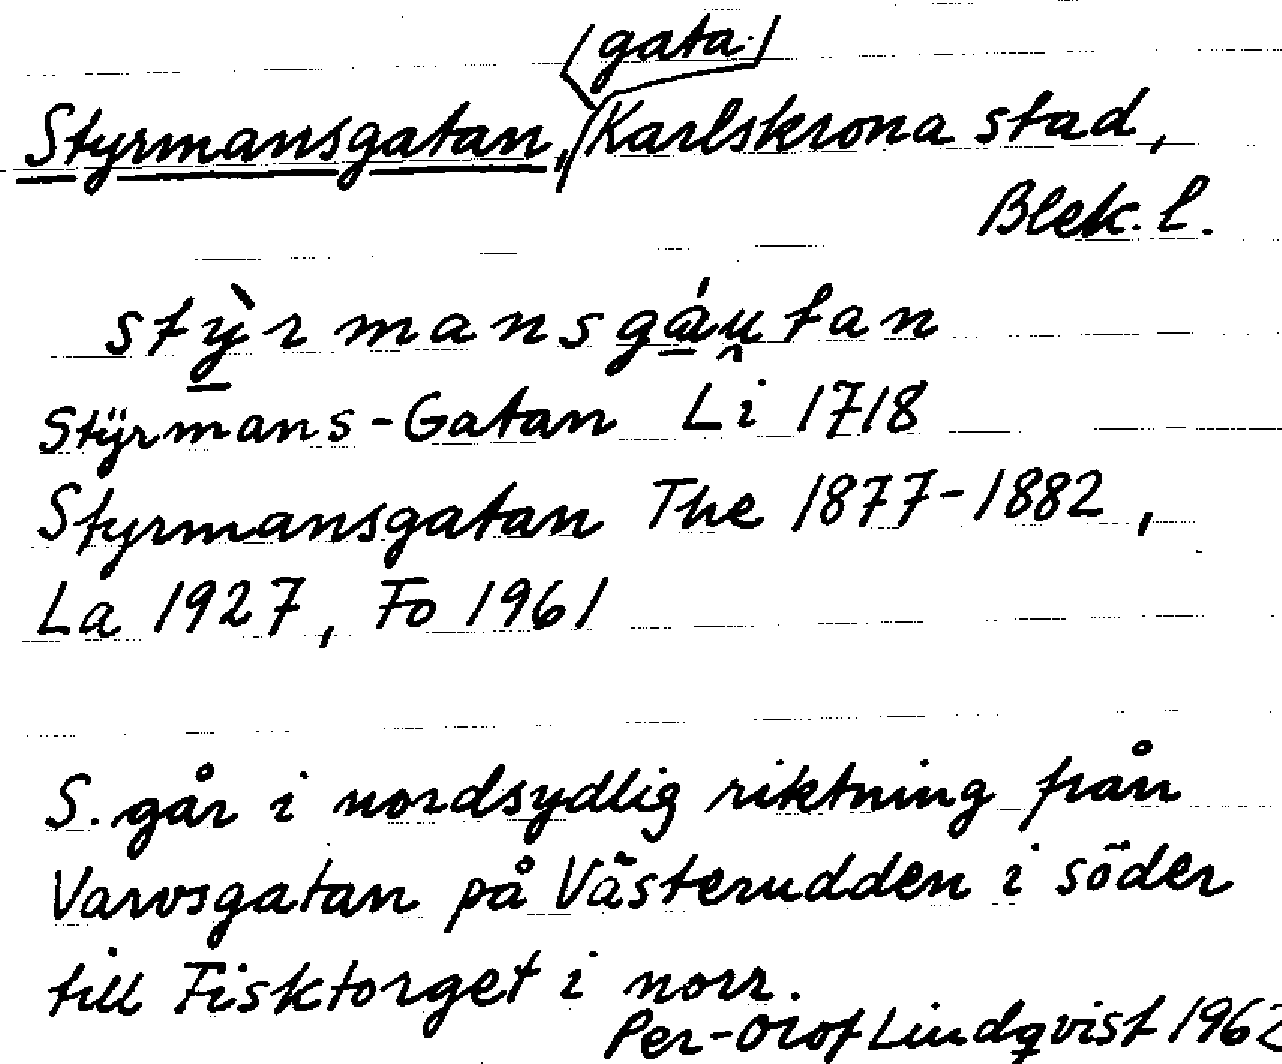 (gata.)
Styrmansgatan, Karlskrona stad,
Blek. l.
stỳrmansgáu̯tan
Stÿrmans-Gatan Li 1718
Styrmansgatan The 1877-1882,
La 1927, Fo 1961
S. går i nordsydlig riktning från
Varvsgatan på Västerudden i söder
till Fisktorget i norr.
Per-Olof Lindqvist 1962